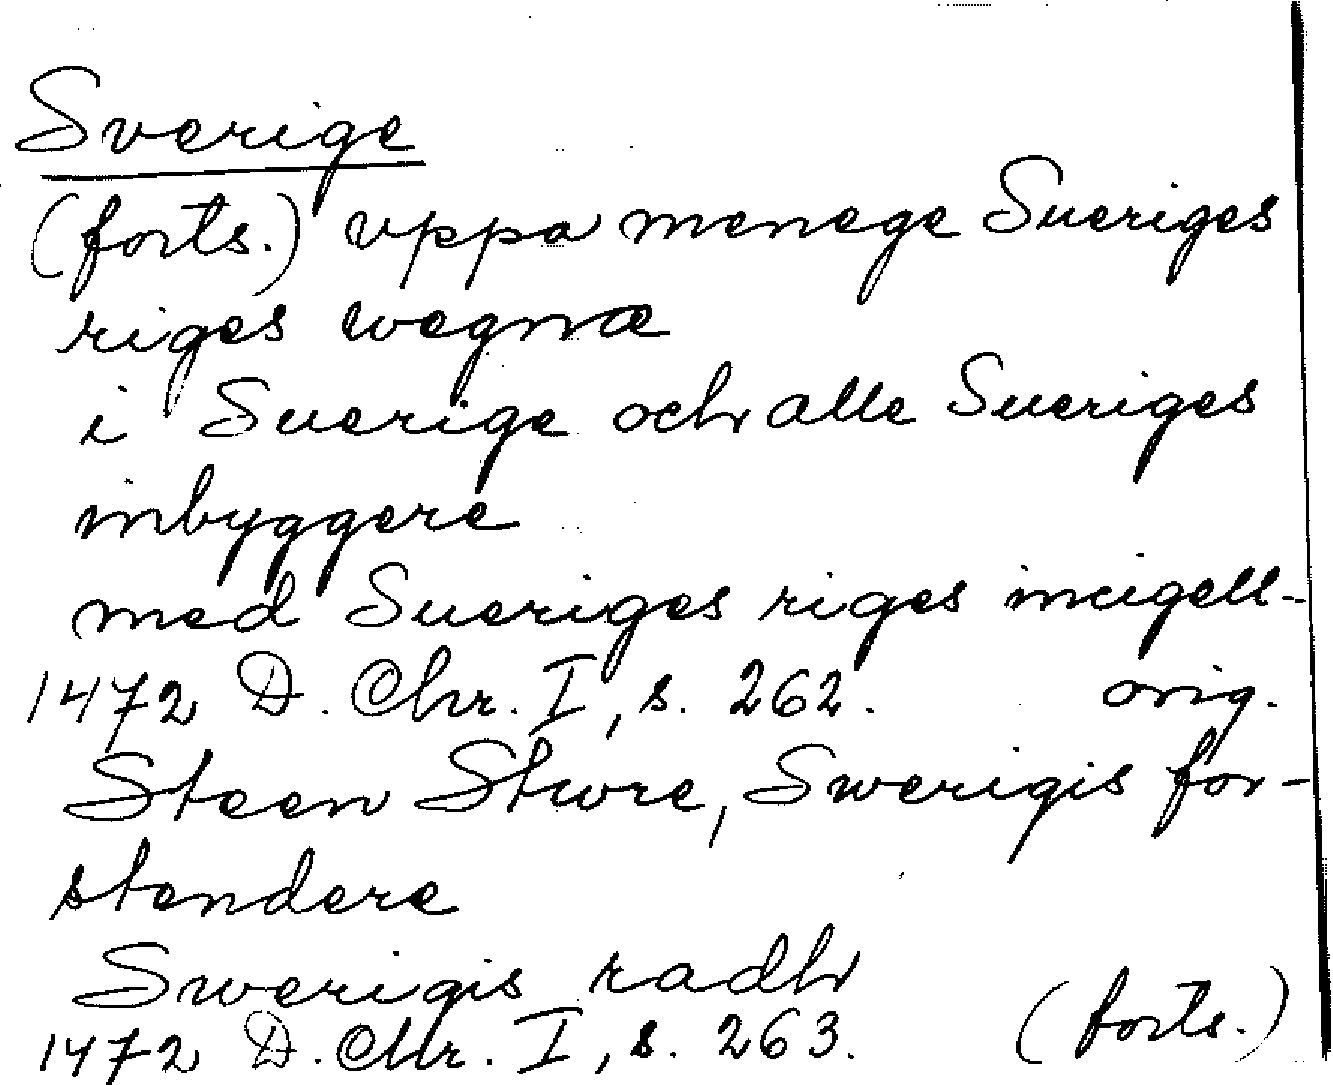 Sverige
(forts.) vppa menege Sueriges
riges wegnæ
i Suerige och alle Sueriges
inbyggere
med Sueriges riges incigell-
1472 D. Chr. I, s. 262. orig.
Steen Stwre, Swerigis for-
standere
Swerigis radh
1472 D. Chr. I, s. 263. (forts.)